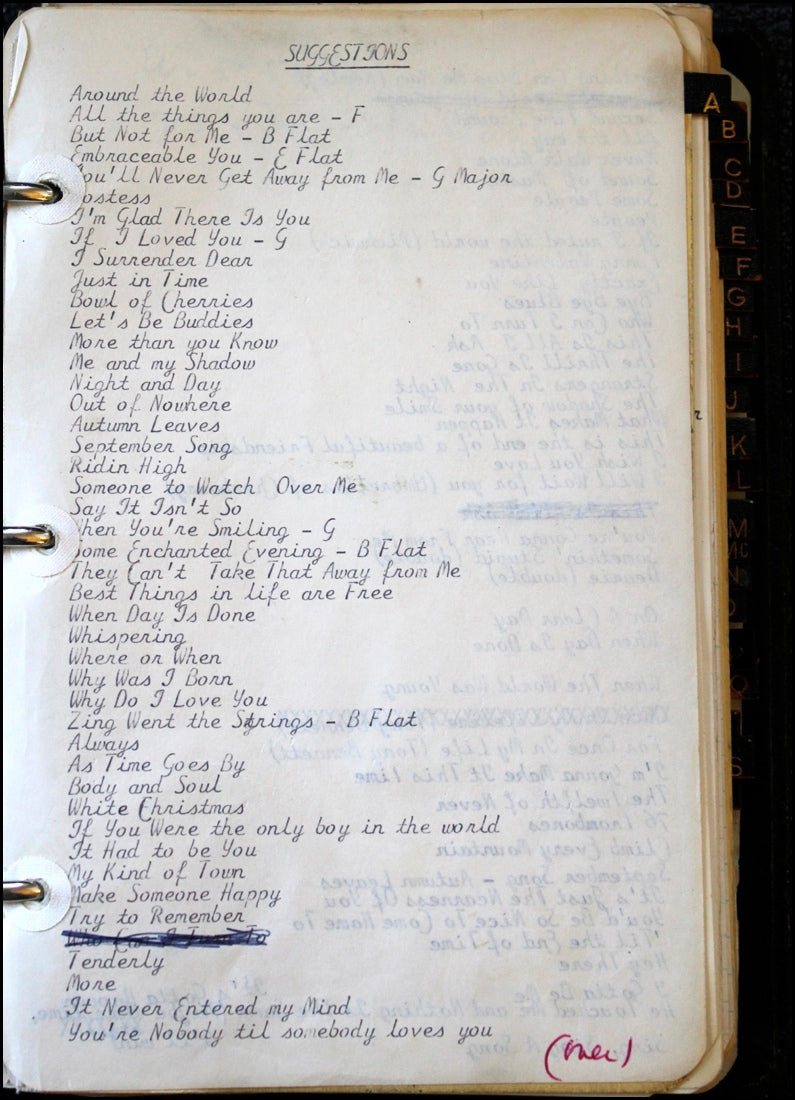 SUGGESTIONS
Around the World
All the things you are - F
But Not for Me - B Flat
Embraceable You - E Flat
You'll Never Get Away from Me - G Major
ostess
I'm Glad There Is You
If I Loved You - G
I Surrender Dear
Just in Time
Bowl of Cherries
Let's Be Buddies
More than you Know
Me and my Shadow
Night and Day
Out of Nowhere
Autumn Leaves
September Song
Ridin High
Someone to Watch Over Me
Say It Isn't So
When You're Smiling - G
Some Enchanted Evening - B Flat
They Can't Take That Away from Me
Best Things in life are Free
When Day Is Done
Whispering
Where or When
Why Was I Born
Why Do I Love You
Zing Went the Strings - B Flat
Always
As Time Goes By
Body and Soul
White Christmas
If You Were the only boy in the world
It Had to be You
My Kind of Town
Make Someone Happy
Try to Remember
Who Can I Turn To
Tenderly
More
It Never Entered my Mind
You're Nobody til somebody loves you
(over)
A
B
C
D
E
F
G
H
I
J
K
L
M
Mc
N
O
Q
S